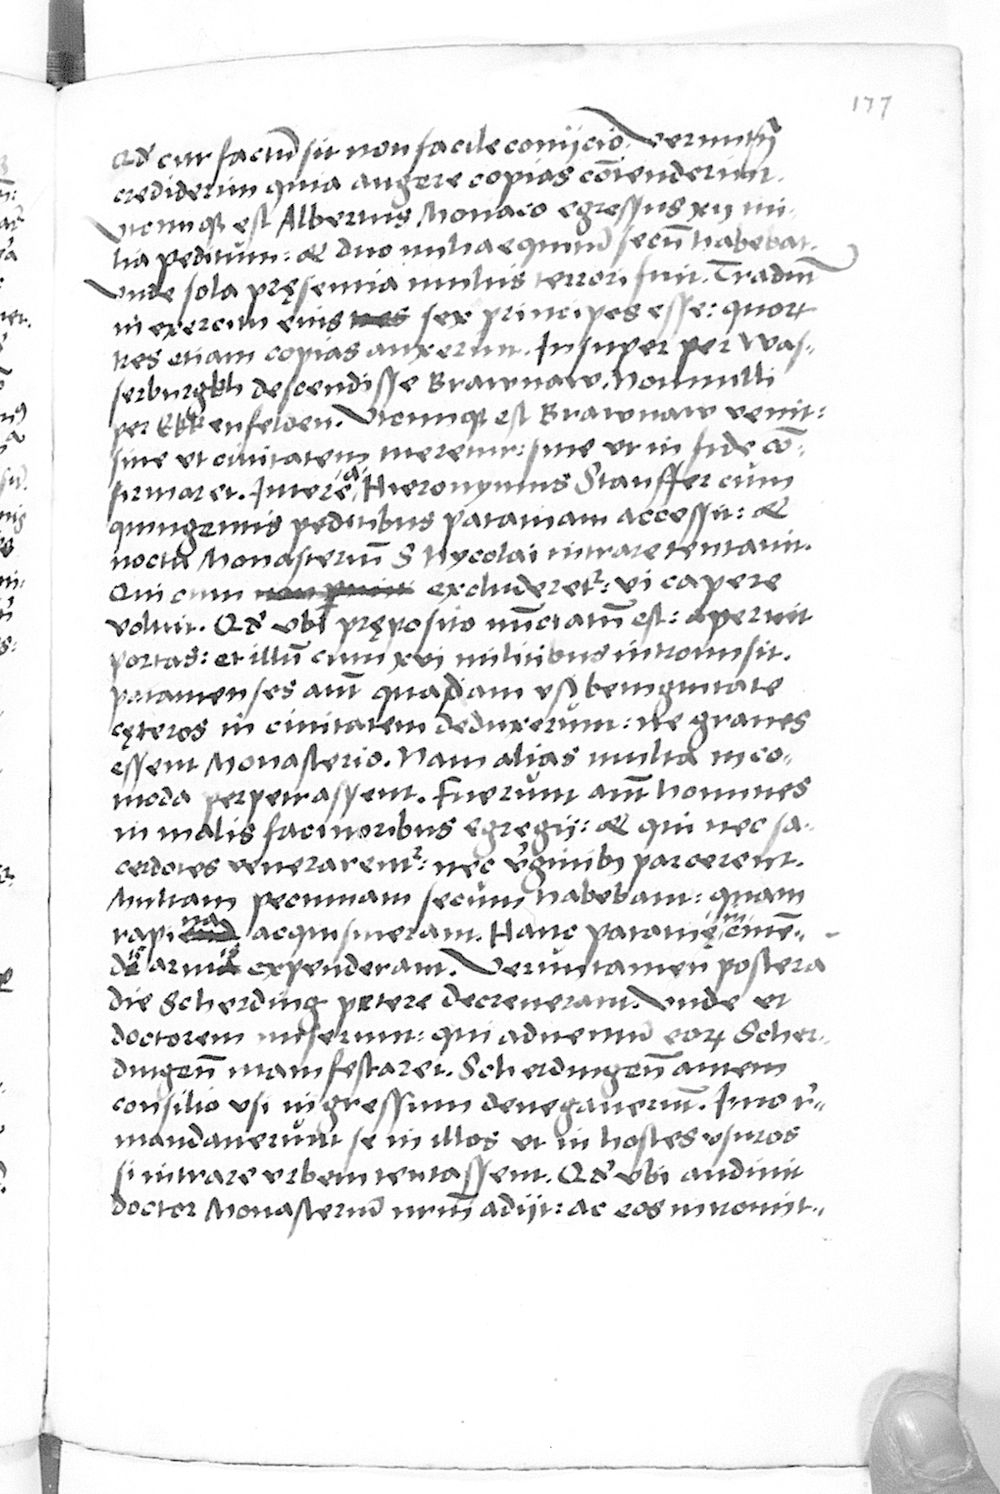 177
Qd' cur factū sit non facile coniicio. Verumtñ
crediderim quia augere copias cōtenderint.
Vtcunqȝ est Albertus Monaco egressus xij mi-
lia peditum: & duo milia equitū secū habebat.
Vnde sola pręsentia multis terrori fuit. Tradūt
in exercitu eius sex principes esse: quorꝝ
tres etiam copias auxerunt. Insuper per Was-
serburgkh descendisse Brawnaw. Nonnulli
per Ekkenfelden. Vtcunqȝ est Brawnaw venit:
siue vt ciuitatem meretur: siue vt in fide cō-
firmaret. Interea Hieronymus Stauffer cum
quingentis peditibus patauiam accessit: &
noctu Monasteriū S Nycolai intrare tentauit.
Qui cum excluderetr: vi capere
voluit. Qd' vbi pręposito nūctiatū est: aperuit
portas: et illū cum xvi militibus intromisit.
patauienses aūt quadam vsi benignitate
cęteros in ciuitatem deduxerunt: ne graues
essent Monasterio. Nam alias multa inco-
moda perpetrassent. Fuerunt aūt homines
in malis facinoribus egregij: & qui nec sa-
cerdotes venerarentr: nec v'ginibȝ parcerent.
Multam pecuniam secum habebant: quam
rapina acquisiuerant. Hanc patauię in emē-
dis armis expenderant. Veruntamen postera
die Scherding petere decreuerant. Vnde et
doctorem miserunt: qui aduentū eorꝝ Scher-
dingeñ manifestaret. Scherdingeñ autem
consilio vsi ingressum denegauerūt. Imo r'-
mandauerunt se in illos vt in hostes vsuros
si intrare vrbem tentassent. Qd' vbi audiuit
doctor Monasteriū nrm̄ adijt: ac eos intromit-